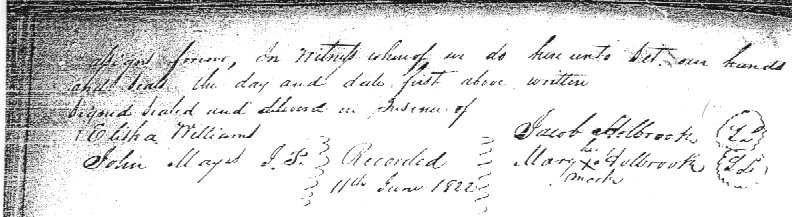 assigns forever, In Witness whereof we do here unto Set our hands
and Seals the day and date first above written
Signed Sealed and delivered in Presence of
Elisha Williams
John Mays J. P.
Recorded
11th June 1822
Jacob Holbrook
her
Mary X Holbrook
mark